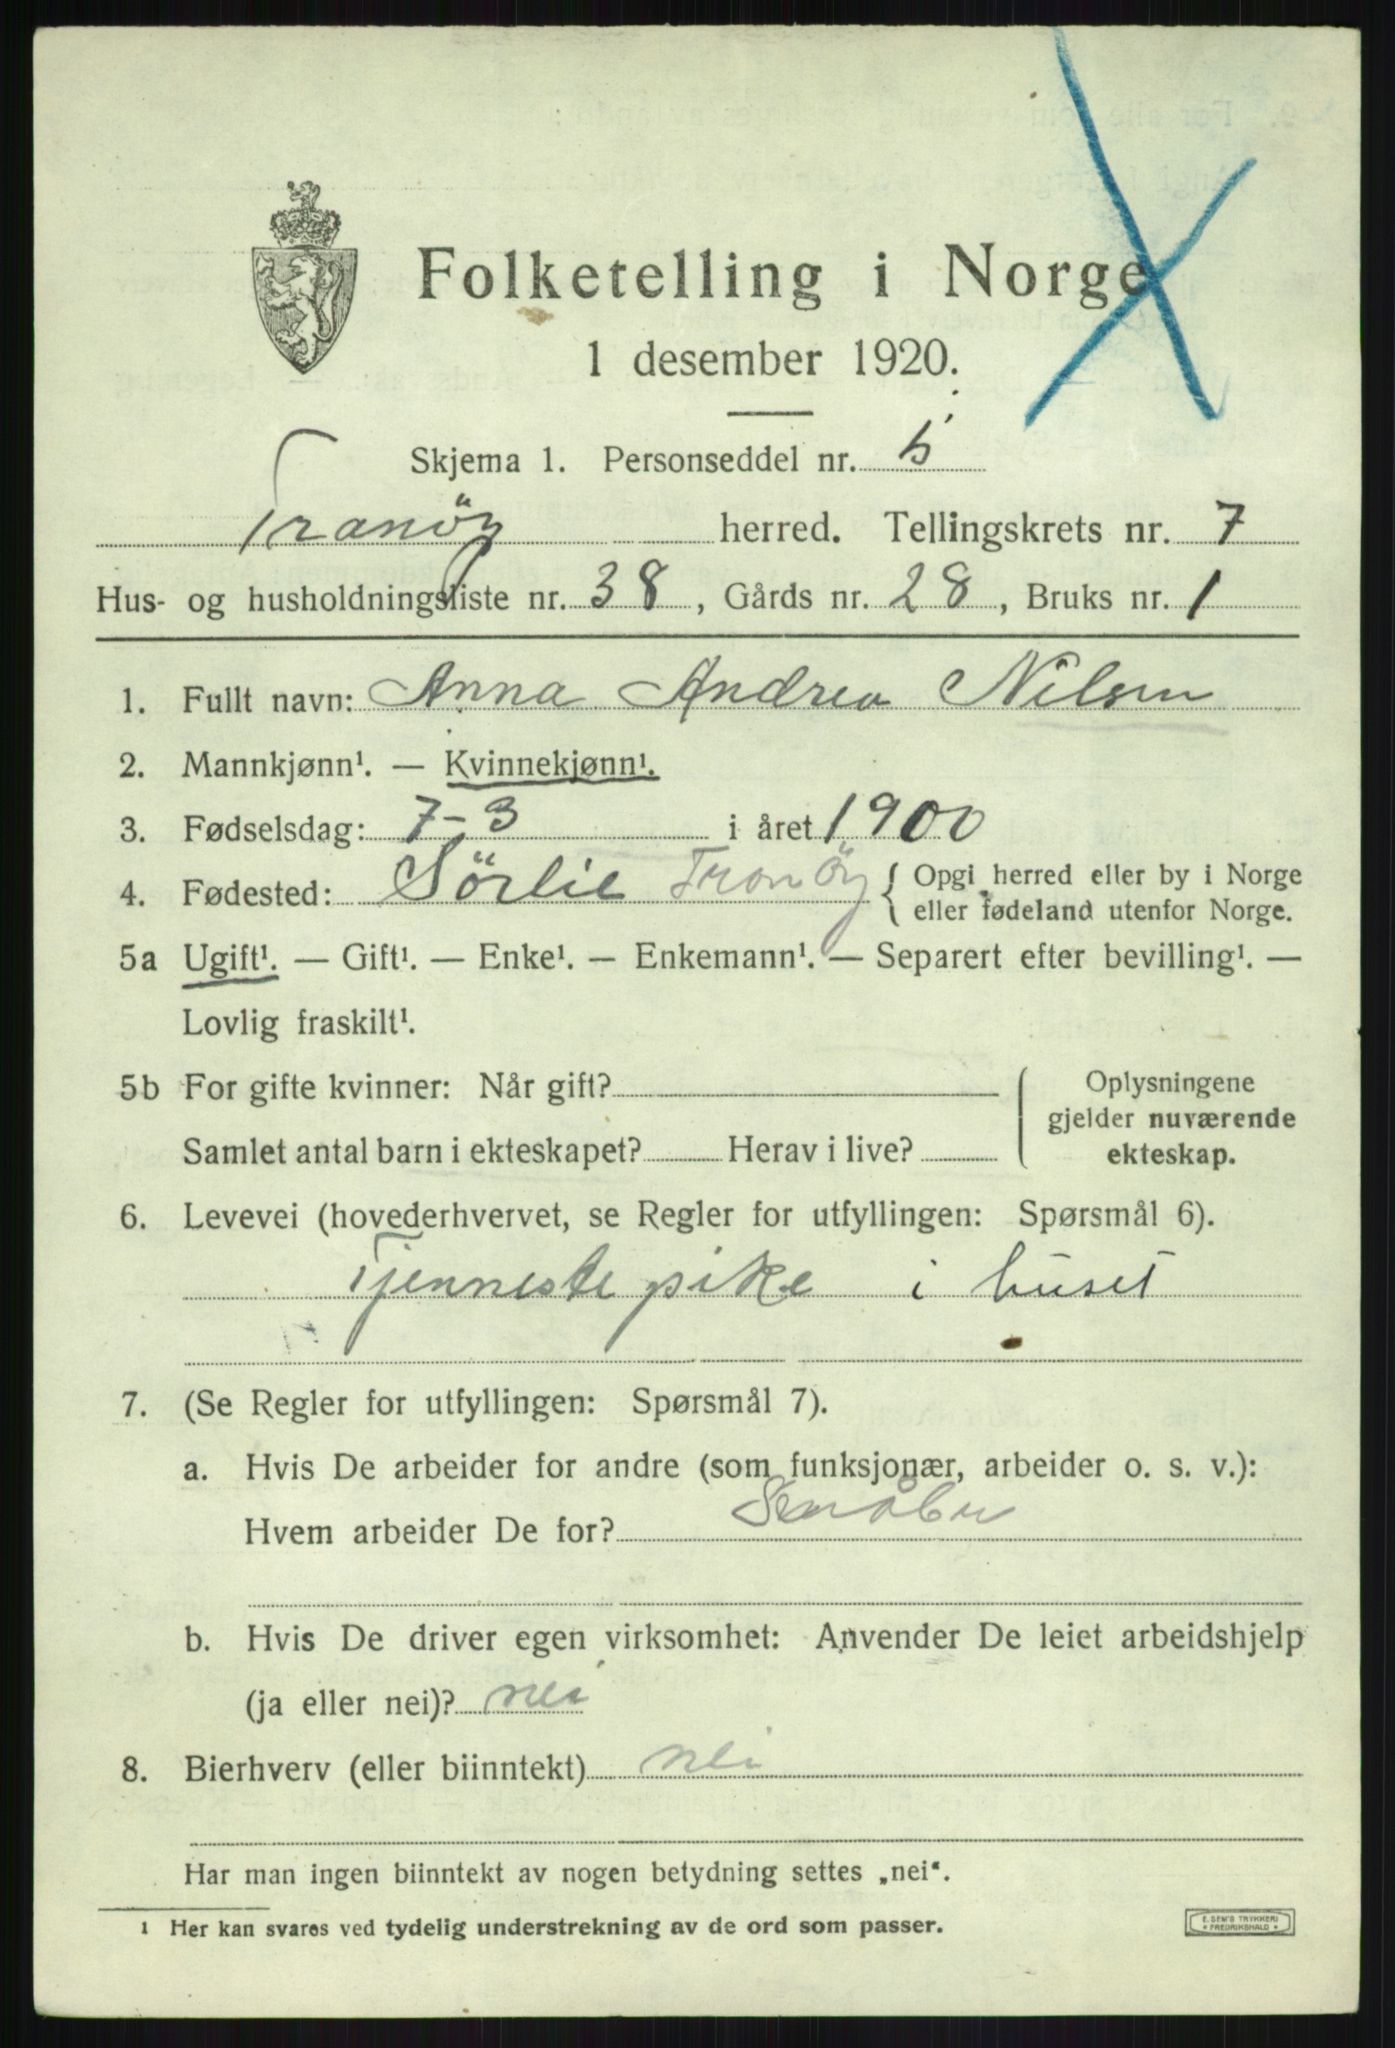 Folketelling i Norge
1 desember 1920.
Skjema 1. Personseddel nr. 5
Tranöy herred. Tellingskrets nr. 7
Hus- og husholdningsliste nr. 38, Gårds nr. 28, Bruks nr. 1
1. Fullt navn: Anna Andrea Nilsen
2. Mannkjønn¹. — Kvinnekjønn¹.
3. Fødselsdag: 7-3 i året 1900
4. Fødested: Sörlie Tranöy { Opgi herred eller by i Norge
eller fødeland utenfor Norge.
5a Ugift¹. — Gift¹. — Enke¹. — Enkemann¹. — Separert efter bevilling¹. —
Lovlig fraskilt¹.
5b For gifte kvinner: Når gift?
Samlet antal barn i ekteskapet? Herav i live?
Oplysningene
gjelder nuværende
ekteskap.
6. Levevei (hovederhvervet, se Regler for utfyllingen: Spørsmål 6).
Tjenneste pike i huset
7. (Se Regler for utfyllingen: Spørsmål 7).
a. Hvis De arbeider for andre (som funksjonær, arbeider o. s. v.):
Hvem arbeider De for?
b. Hvis De driver egen virksomhet: Anvender De leiet arbeidshjelp
(ja eller nei)? nei
8. Bierhverv (eller biinntekt) nei
Har man ingen biinntekt av nogen betydning settes „nei“.
¹ Her kan svares ved tydelig understrekning av de ord som passer.
E. SEM'S TRYKKERI
* FREDRIKSHALD *